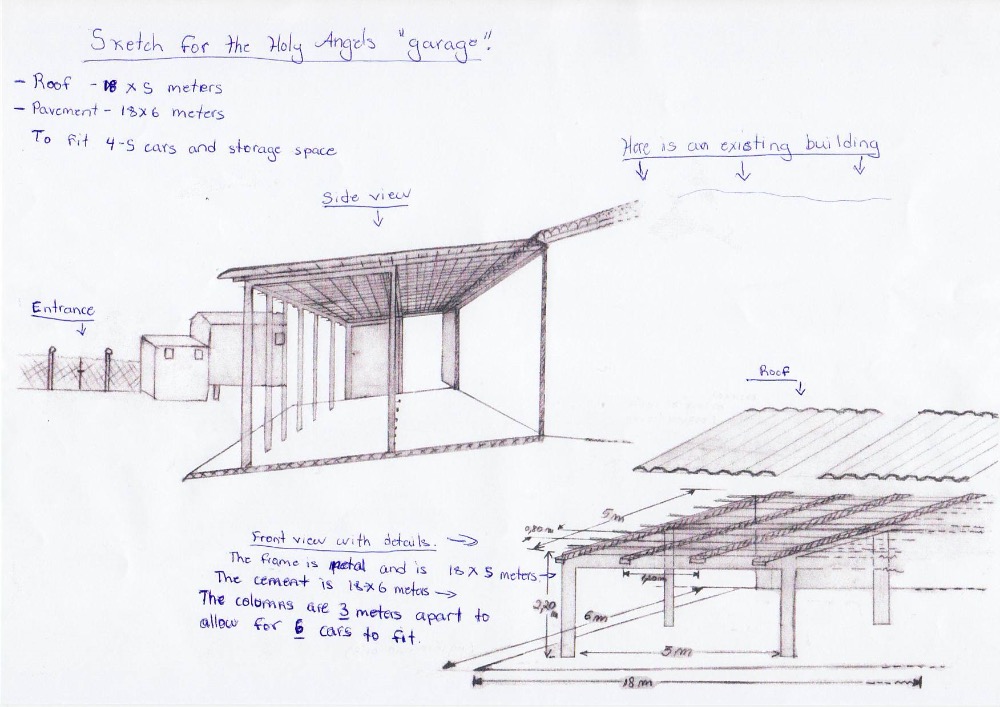 Sketch for the Holy Angels "garage".
- Roof - 18 x 5 meters
- Pavement - 18x6 meters
To fit 4-5 cars and storage space
Here is an existing building
Side view
Entrance
Roof
5m
0,80m
Front view with details.
The frame is metal and is 18 x 5 meters
The cement is 18x6 meters
The columns are 3 meters apart to
allow for 6 cars to fit.
2,20
m
6m
3m
18m